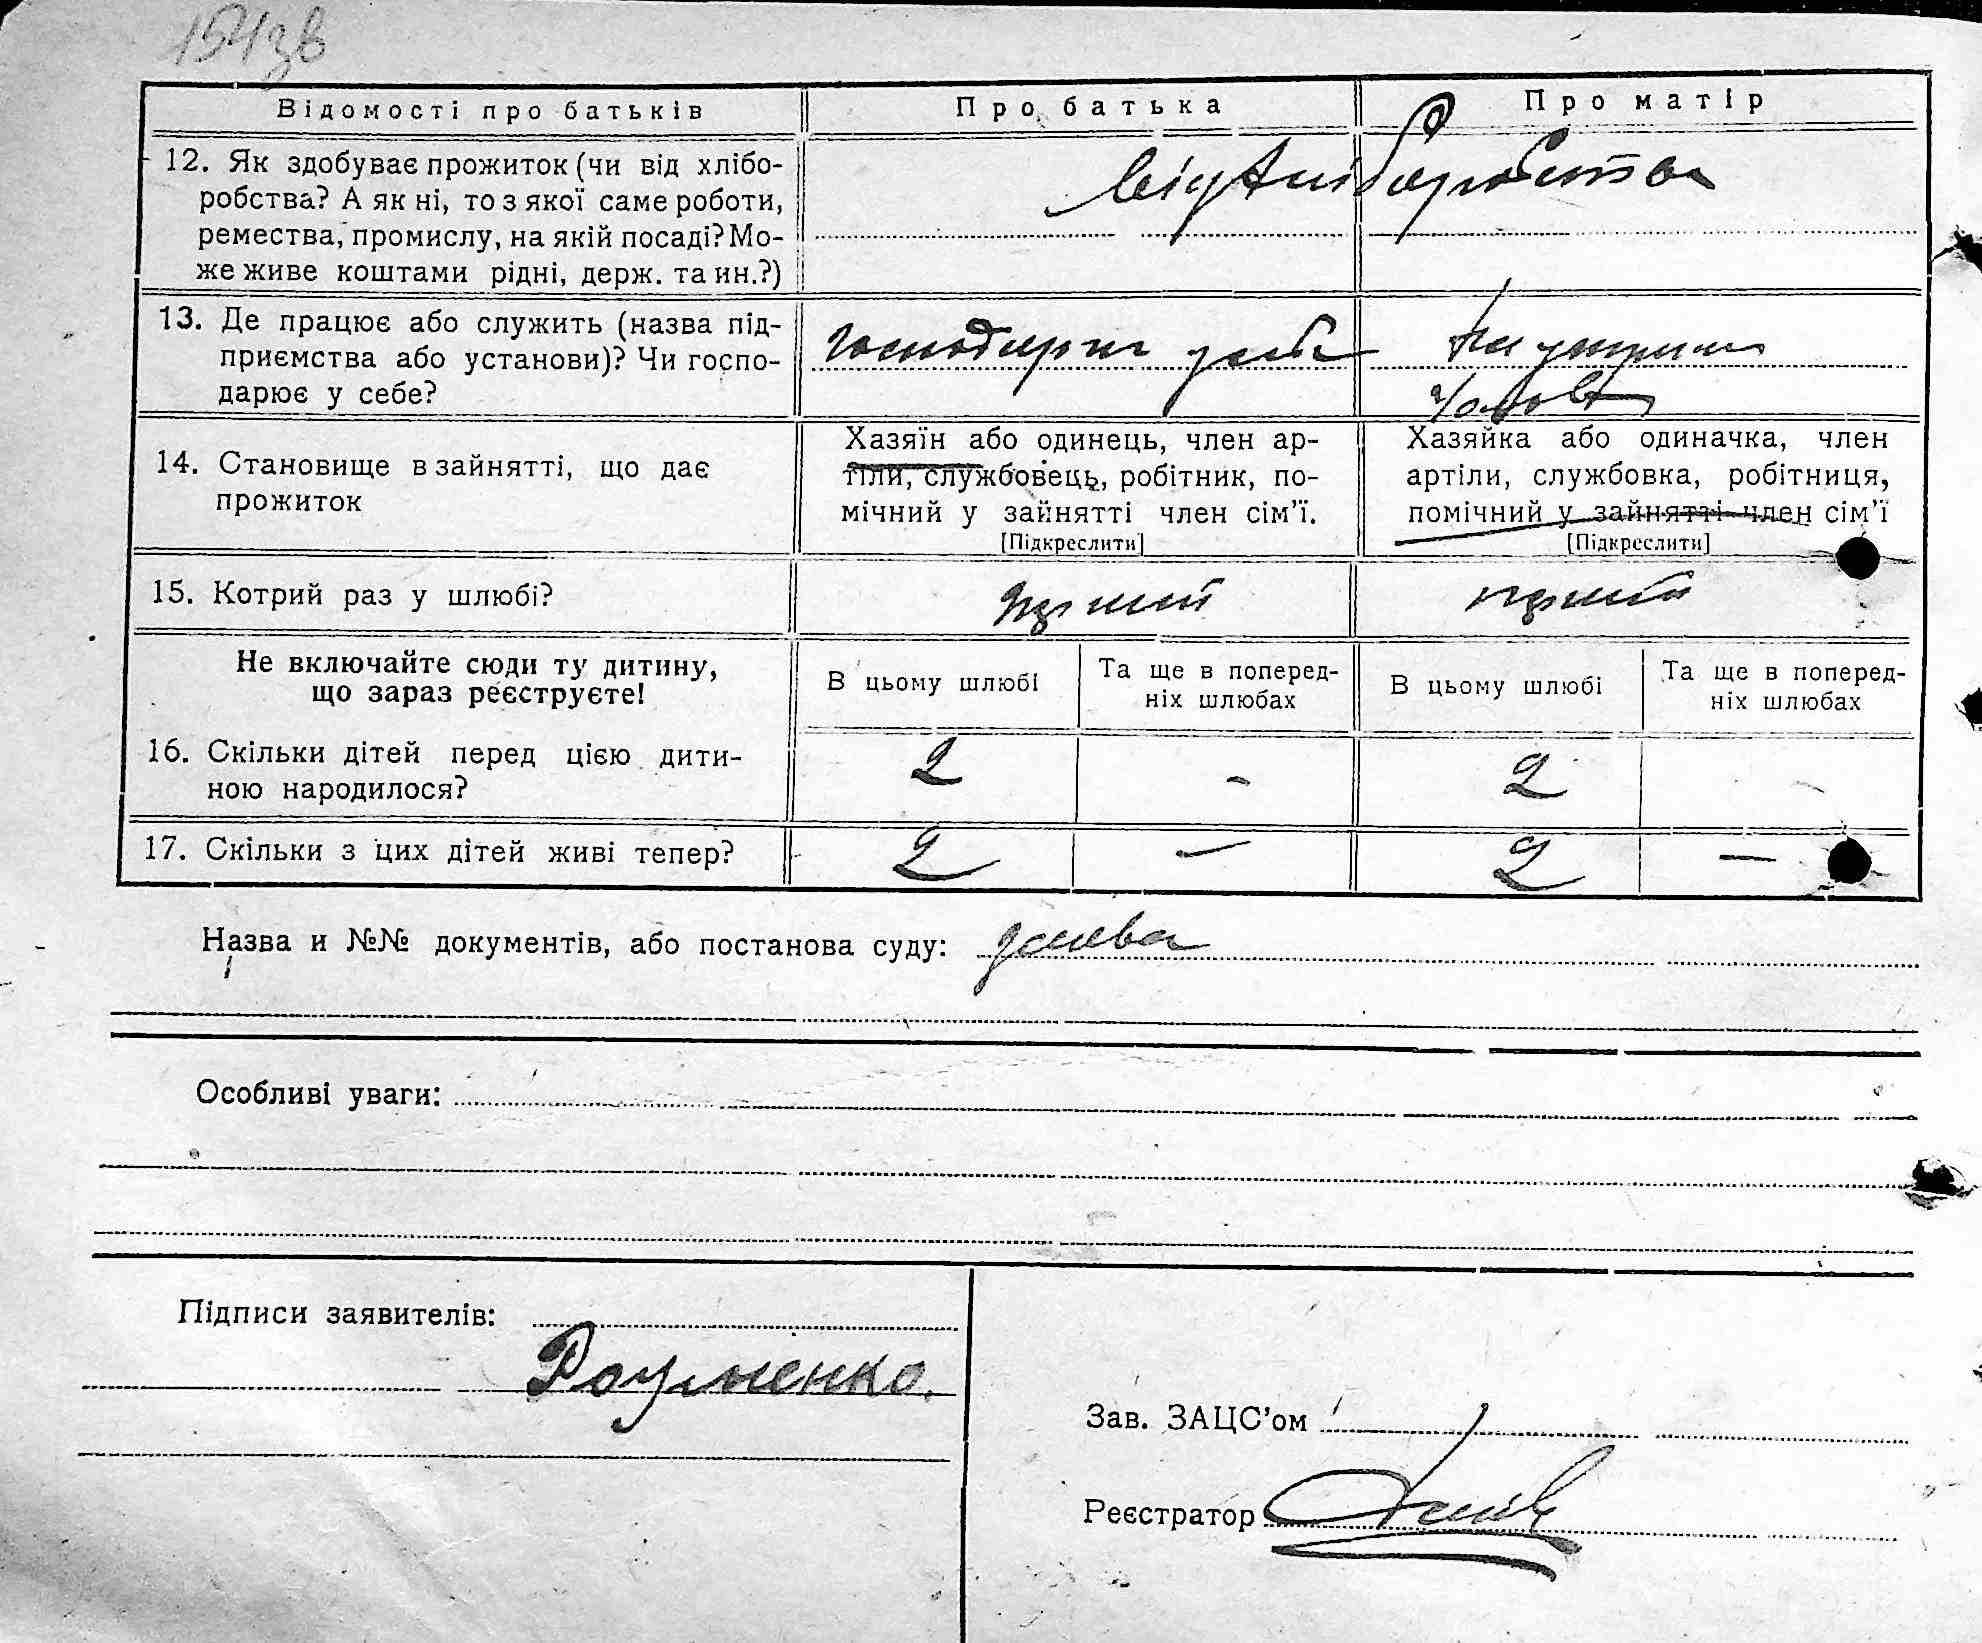 154зв
Відомості про батьків
Про батька
Про матір
12. Як здобуває прожиток (чи від хлібо-
робства? А як ні, то з якої саме роботи,
ремества, промислу, на якій посаді? Мо-
же живе коштами рідні, держ. та ин.?)
від хліборобства
13. Де працює або служить (назва під-
приємства або установи)? Чи госпо-
дарює у себе?
господарює у себе
На утрим
чолов
14. Становище в зайнятті, що дає
прожиток
Хазяїн або одинець, член ар-
тіли, службовець, робітник, по-
мічний у зайнятті член сім'ї.
[Підкреслити]
Хазяйка або одиначка, член
артіли, службовка, робітниця,
помічний у зайнятті член сім'ї
[Підкреслити]
15. Котрий раз у шлюбі?
перший
перший
Не включайте сюди ту дитину,
що зараз реєструєте!
В цьому шлюбі
Та ще в поперед-
ніх шлюбах
В цьому шлюбі
Та ще в поперед-
ніх шлюбах
16. Скільки дітей перед цією дити-
ною народилося?
2 - 2
17. Скільки з цих дітей живі тепер?
2 — 2 —
Назва и №№ документів, або постанова суду: заява
Особливі уваги:
Підписи заявителів:
Розумненко.
Зав. ЗАЦС'ом
Реєстратор